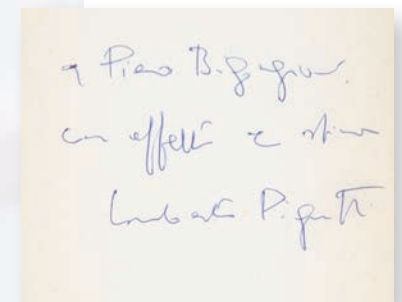 a Piero Bigongiari
con affetto e stima
Lamberto Pignotti